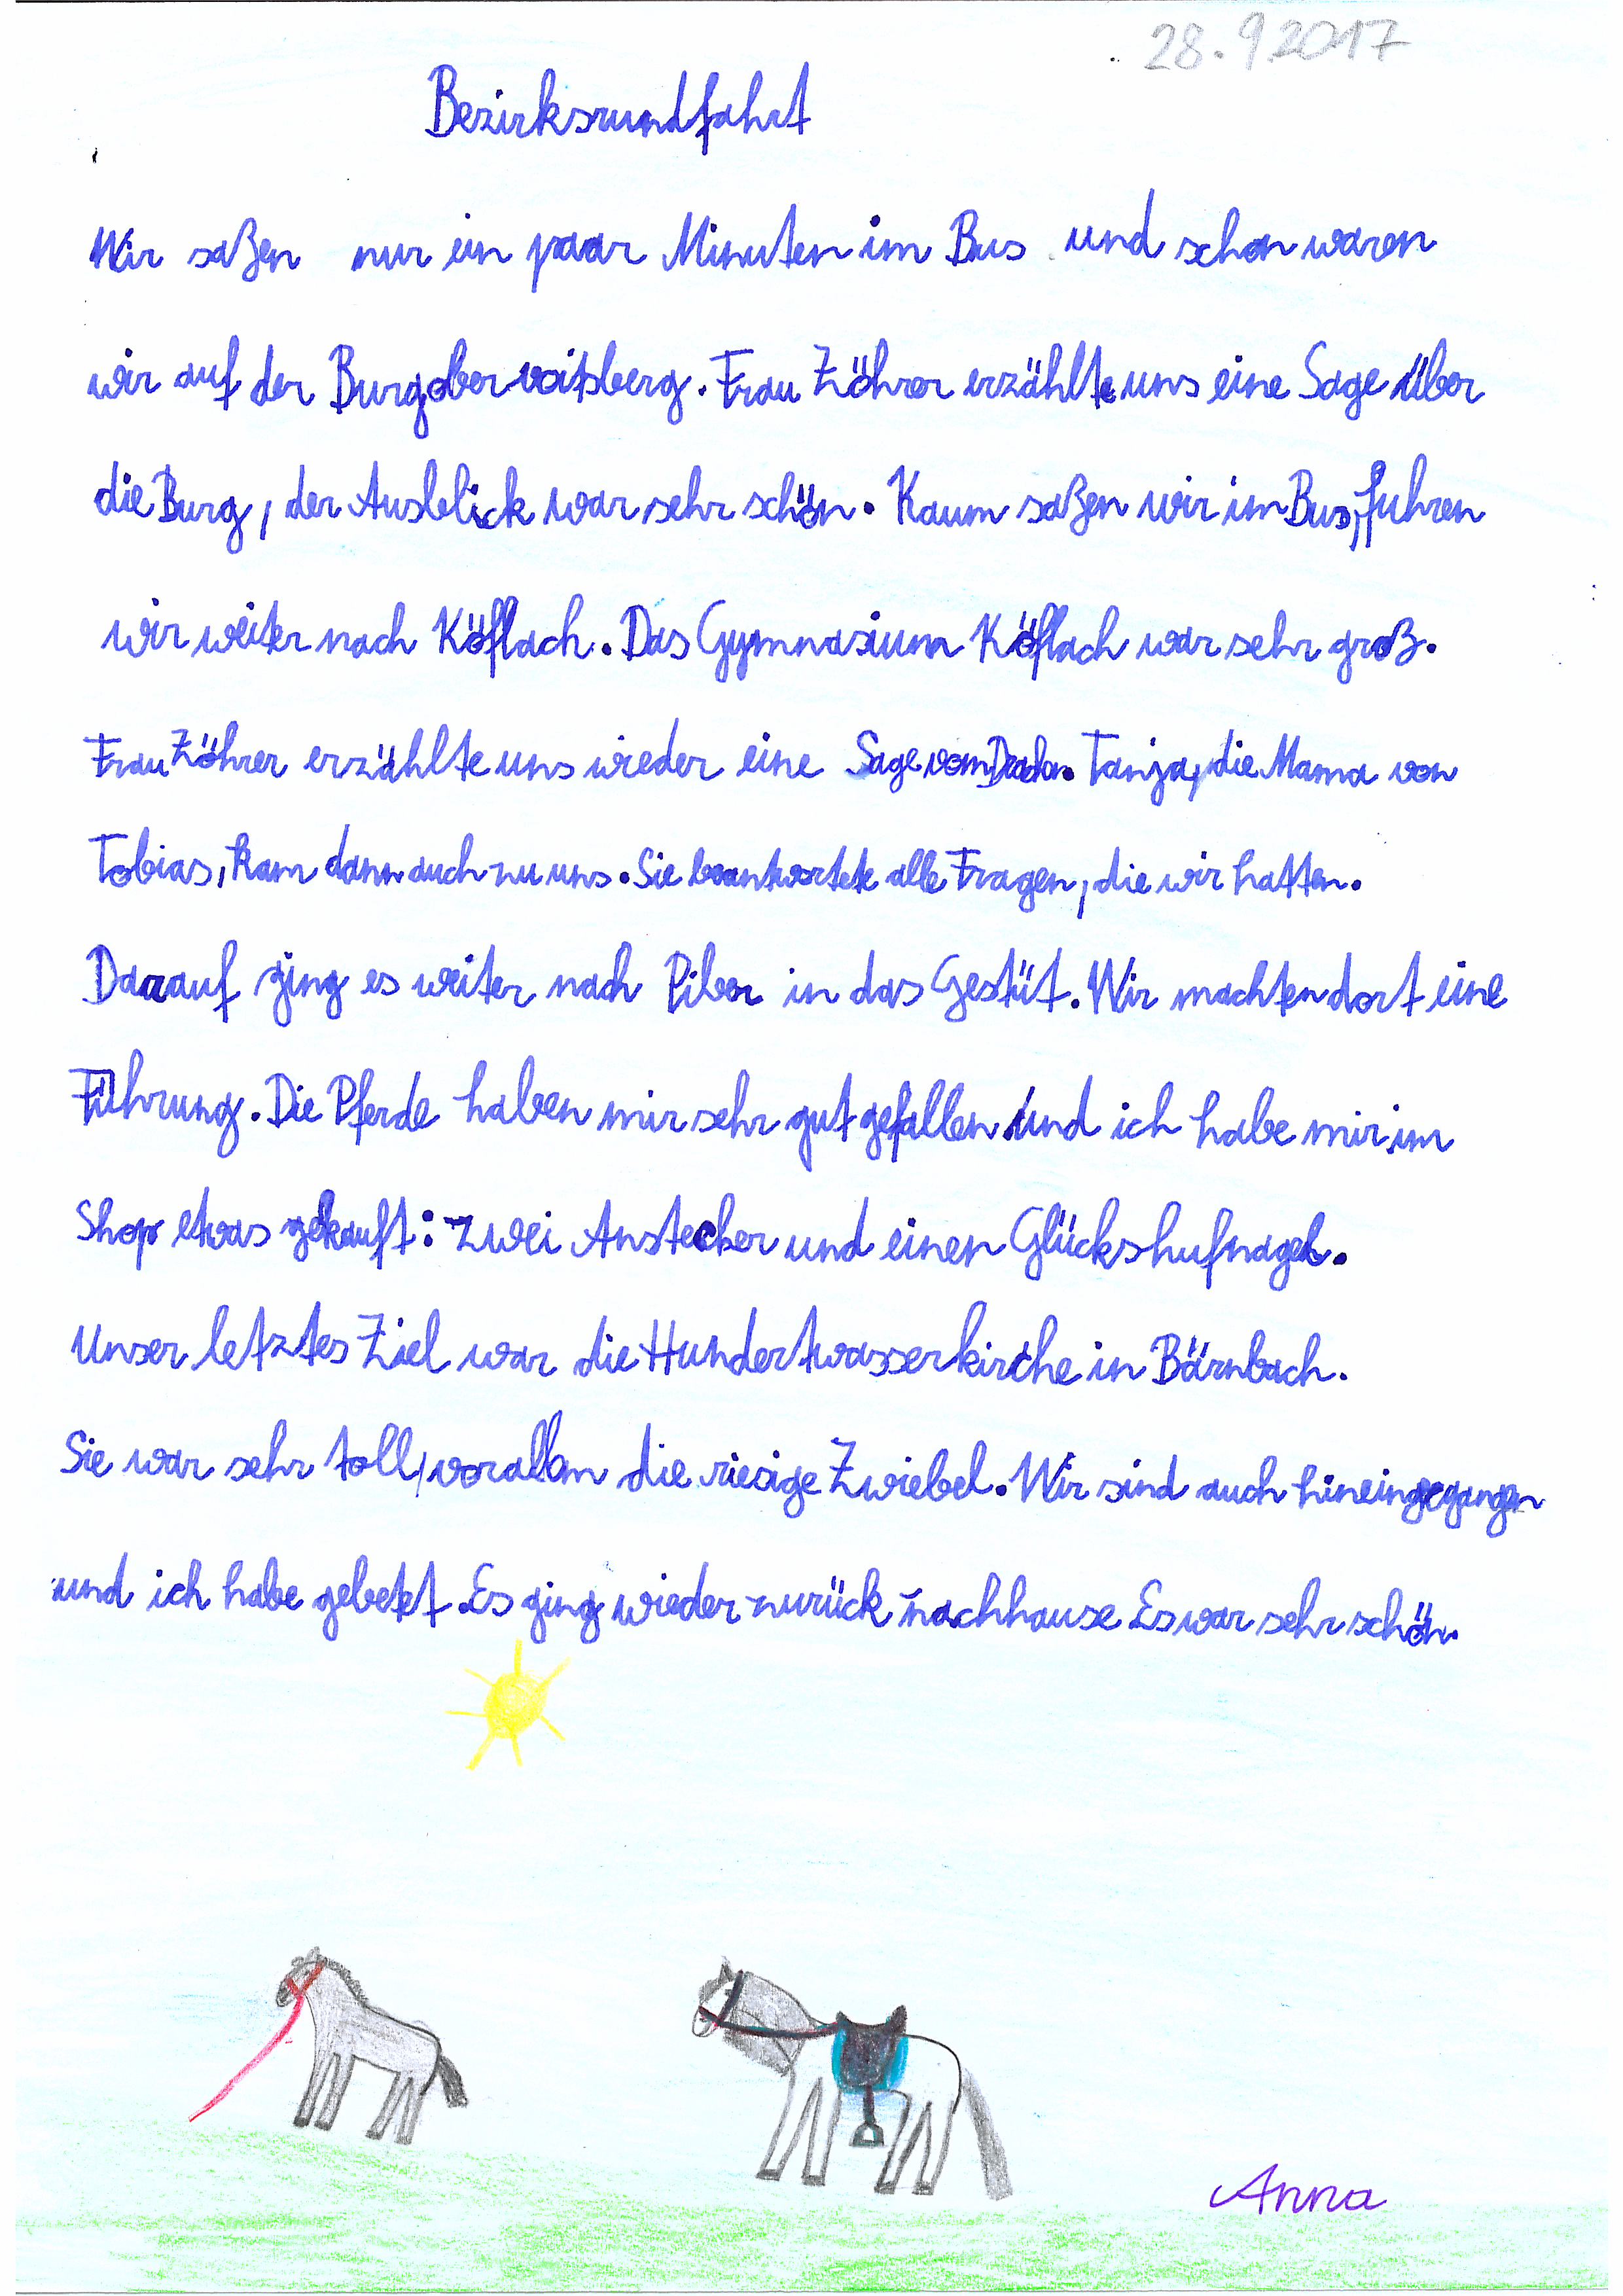 28.9.2017
Bezirksrundfahrt
Wir saßen nur ein paar Minuten im Bus und schon waren
wir auf der Burgobervoitsberg. Frau Zöhrer erzählte uns eine Sage über
die Burg, der Ausblick war sehr schön. Kaum saßen wir im Bus, fuhren
wir weiter nach Köflach. Das Gymnasium Köflach war sehr groß.
Frau Zöhrer erzählte uns wieder eine Sage vom Tanja, die Mama von
Tobias, kam dann auch zu uns. Sie beantwortete alle Fragen, die wir hatten.
Darauf ging es weiter nach Piber in das Gestüt. Wir machten dort eine
Führung. Die Pferde haben mir sehr gut gefallen und ich habe mir im
Shop etwas gekauft: zwei Anstecker und einen Glückshufnagel.
Unser letztes Ziel war die Hundertwasserkirche in Bärnbach.
Sie war sehr toll, vorallem die riesige Zwiebel. Wir sind auch hineingegangen
und ich habe gebetet. Es ging wieder zurück nachhause Es war sehr schön.
Anna